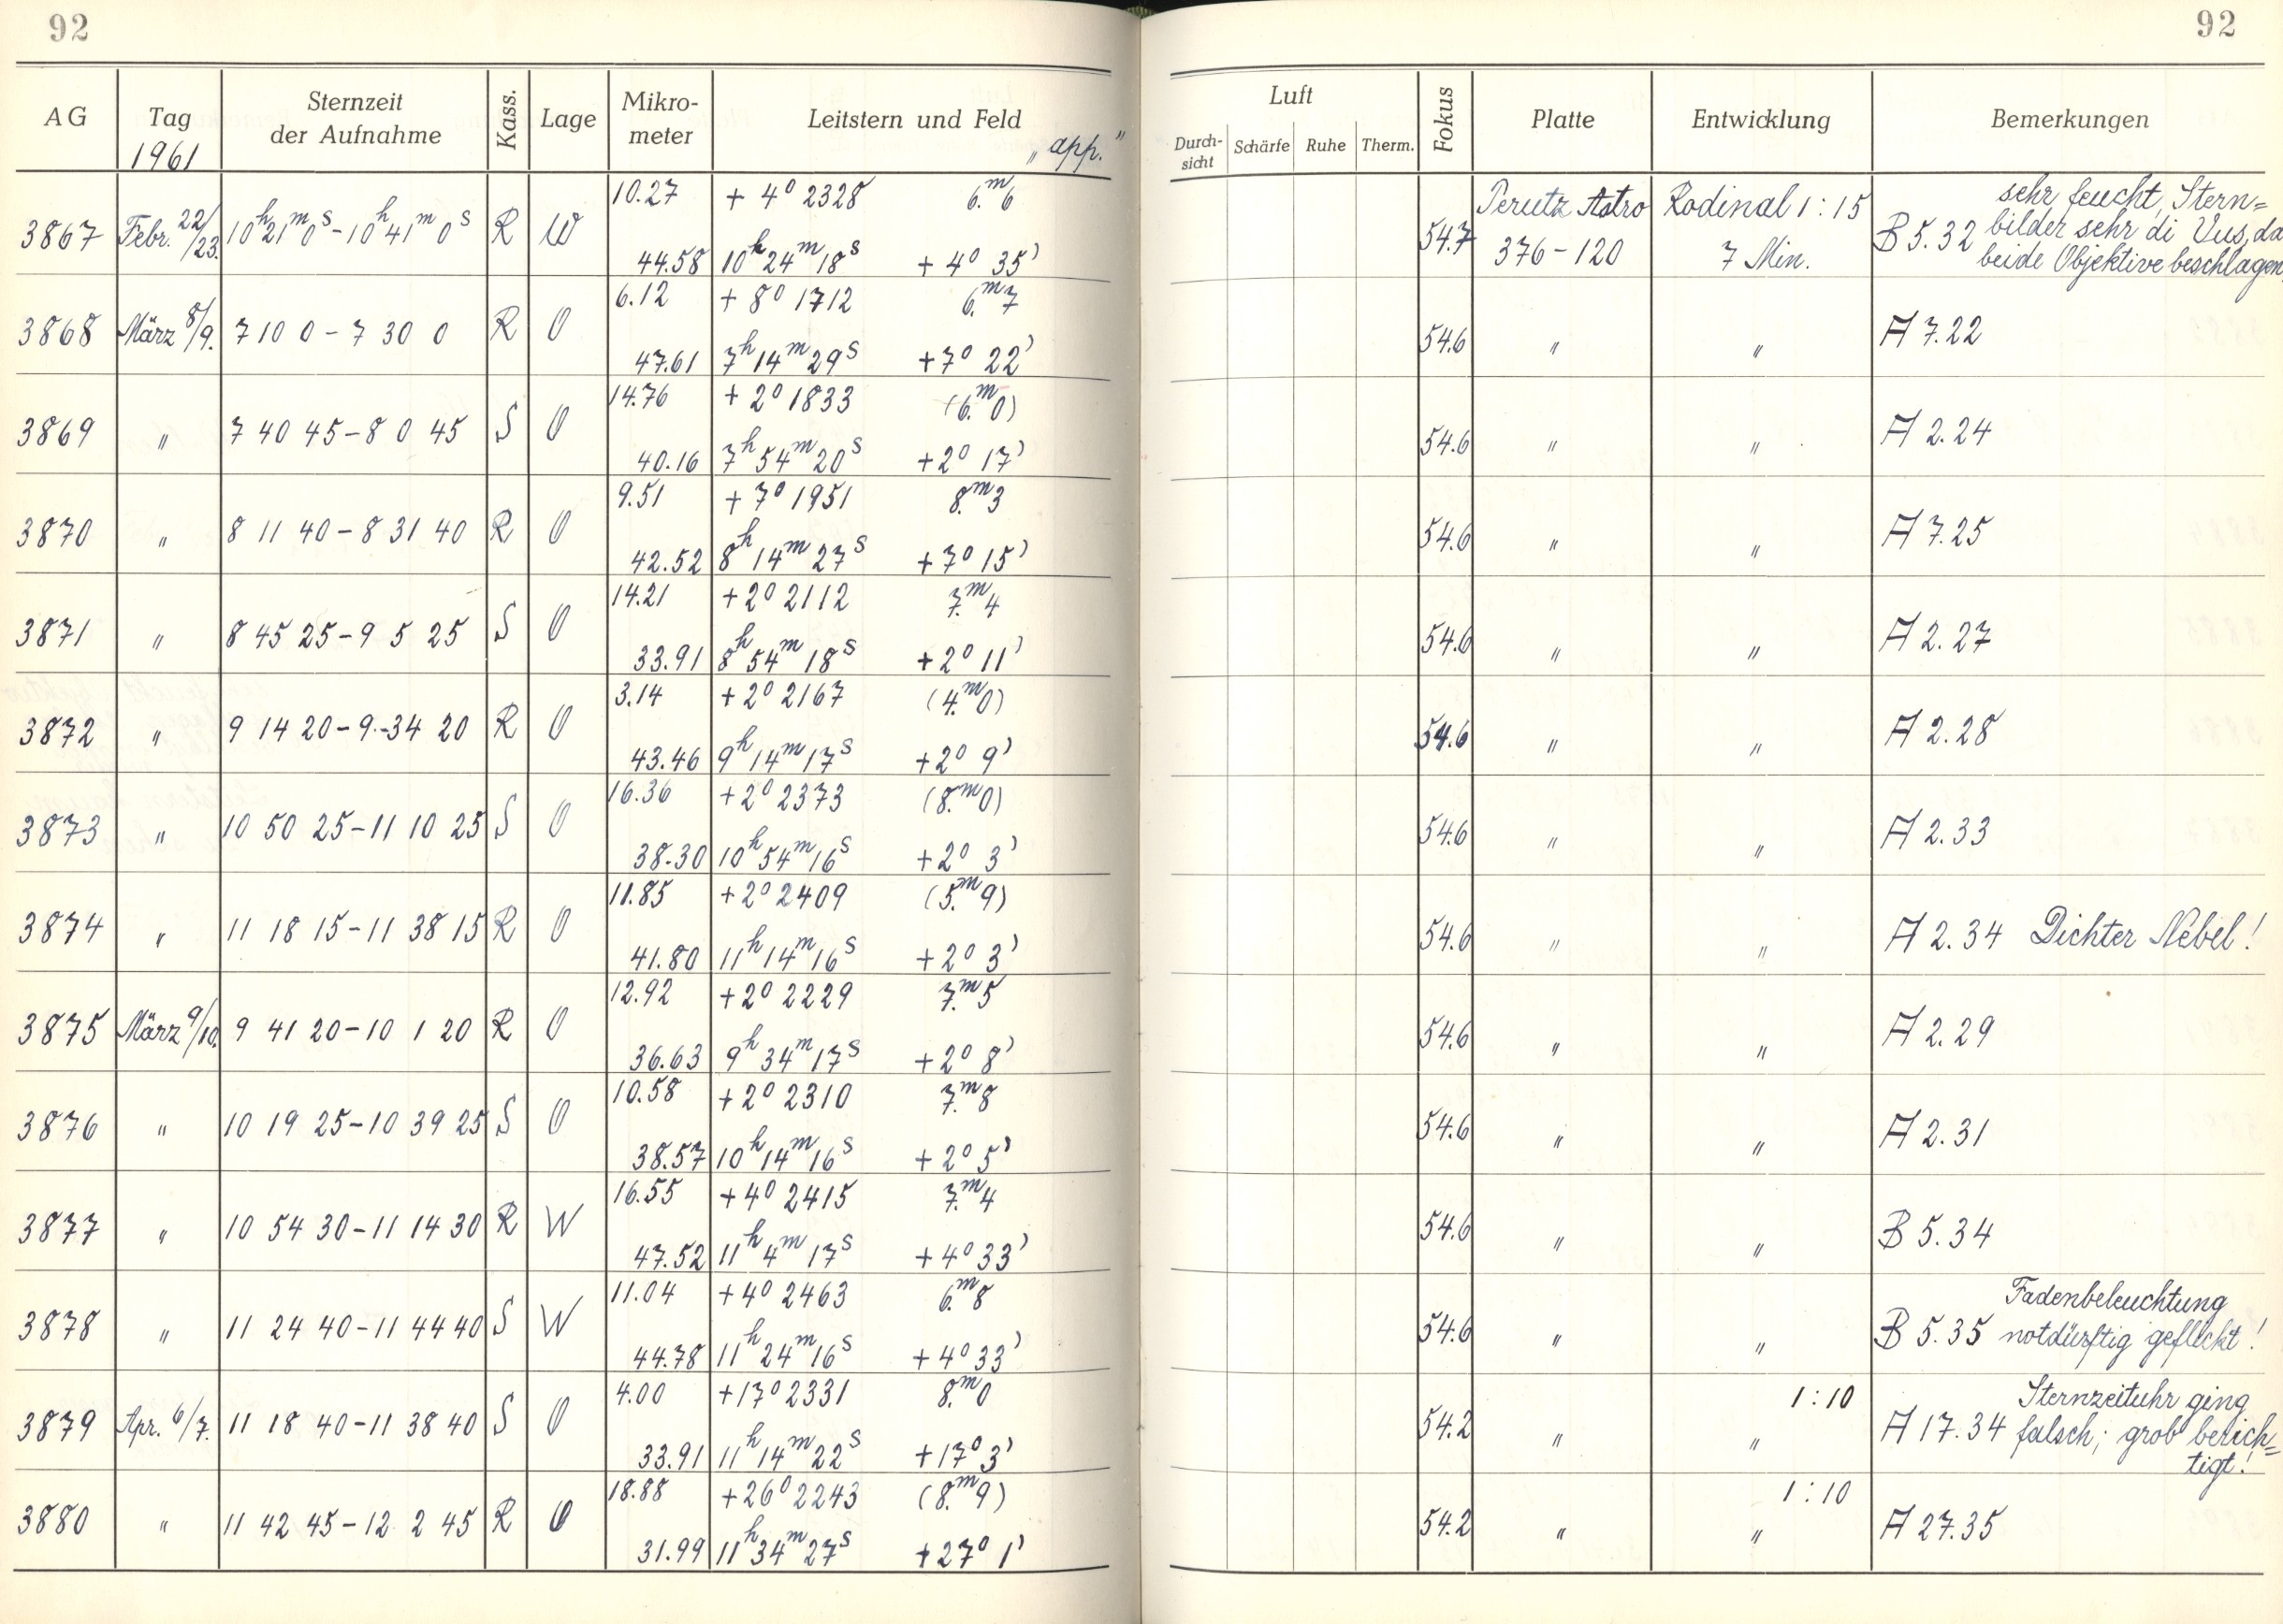 92
92
AG Tag Sternzeit der Aufnahme Kass. Lage Mikro- meter Leitstern und Feld Luft Durch- sicht Schärfe Ruhe Therm. Fokus Platte Entwicklung Bemerkungen
1961 "app."
10.27 + 4° 2328 6.ᵐ6 Perutz Astro Rodinal 1:15 sehr feucht, Stern=
3867 Febr. 22/23. 10ʰ21ᵐ0ˢ-10ʰ41ᵐ0ˢ R W 54.7 376-120 7 Min. B 5.32 bilder sehr di da
44.58 10ʰ24ᵐ18ˢ + 4° 35' beide Objektive beschlagen
6.12 + 8° 1712 6.ᵐ7
3868 März 8/9. 7 10 0 - 7 30 0 R O 54.6 " " A 7.22
47.61 7ʰ14ᵐ29ˢ +7° 22'
14.76 + 2° 1833 (6.ᵐ0)
3869 " 7 40 45-8 0 45 S O 54.6 " " A 2.24
40.16 7ʰ54ᵐ20ˢ +2° 17'
9.51 + 7° 1951 8.ᵐ3
3870 " 8 11 40-8 31 40 R O 54.6 " " A 7.25
42.52 8ʰ14ᵐ27ˢ +7° 15'
14.21 +2° 2112 7.ᵐ4
3871 " 8 45 25-9 5 25 S O 54.6 " " A 2.27
33.91 8ʰ54ᵐ18ˢ +2° 11'
3.14 +2° 2167 (4.ᵐ0)
3872 " 9 14 20-9-34 20 R O 54.6 " " A 2.28
43.46 9ʰ14ᵐ17ˢ +2° 9'
16.36 +2° 2373 (8.ᵐ0)
3873 " 10 50 25-11 10 25 S O 54.6 " " A 2.33
38.30 10ʰ54ᵐ16ˢ +2° 3'
11.85 +2° 2409 (5.ᵐ9)
3874 " 11 18 15-11 38 15 R O 54.6 " " A 2.34 Dichter Nebel!
41.80 11ʰ14ᵐ16ˢ +2° 3'
12.92 +2° 2229 7.ᵐ5
3875 März 9/10. 9 41 20-10 1 20 R O 54.6 " " A 2.29
36.63 9ʰ34ᵐ17ˢ +2° 8'
10.58 +2° 2310 7.ᵐ8
3876 " 10 19 25-10 39 25 S O 54.6 " " A 2.31
38.57 10ʰ14ᵐ16ˢ +2° 5'
16.55 +4° 2415 7.ᵐ4
3877 " 10 54 30-11 14 30 R W 54.6 " " B 5.34
47.52 11ʰ4ᵐ17ˢ +4° 33'
11.04 +4° 2463 6.ᵐ8 Fadenbeleuchtung
3878 " 11 24 40-11 44 40 S W 54.6 " " B 5.35 notdürftig geflickt!
44.78 11ʰ24ᵐ16ˢ +4° 33'
4.00 +17° 2331 8.ᵐ0 1:10 Sternzeituhr ging
3879 Apr. 6/7. 11 18 40-11 38 40 S O 54.2 " " A 17.34 falsch; grob berich=
33.91 11ʰ14ᵐ22ˢ +17° 3' tigt!
18.88 +26° 2243 (8.ᵐ9) 1:10
3880 " 11 42 45-12 2 45 R O 54.2 " " A 27.35
31.99 11ʰ34ᵐ27ˢ +27° 1'